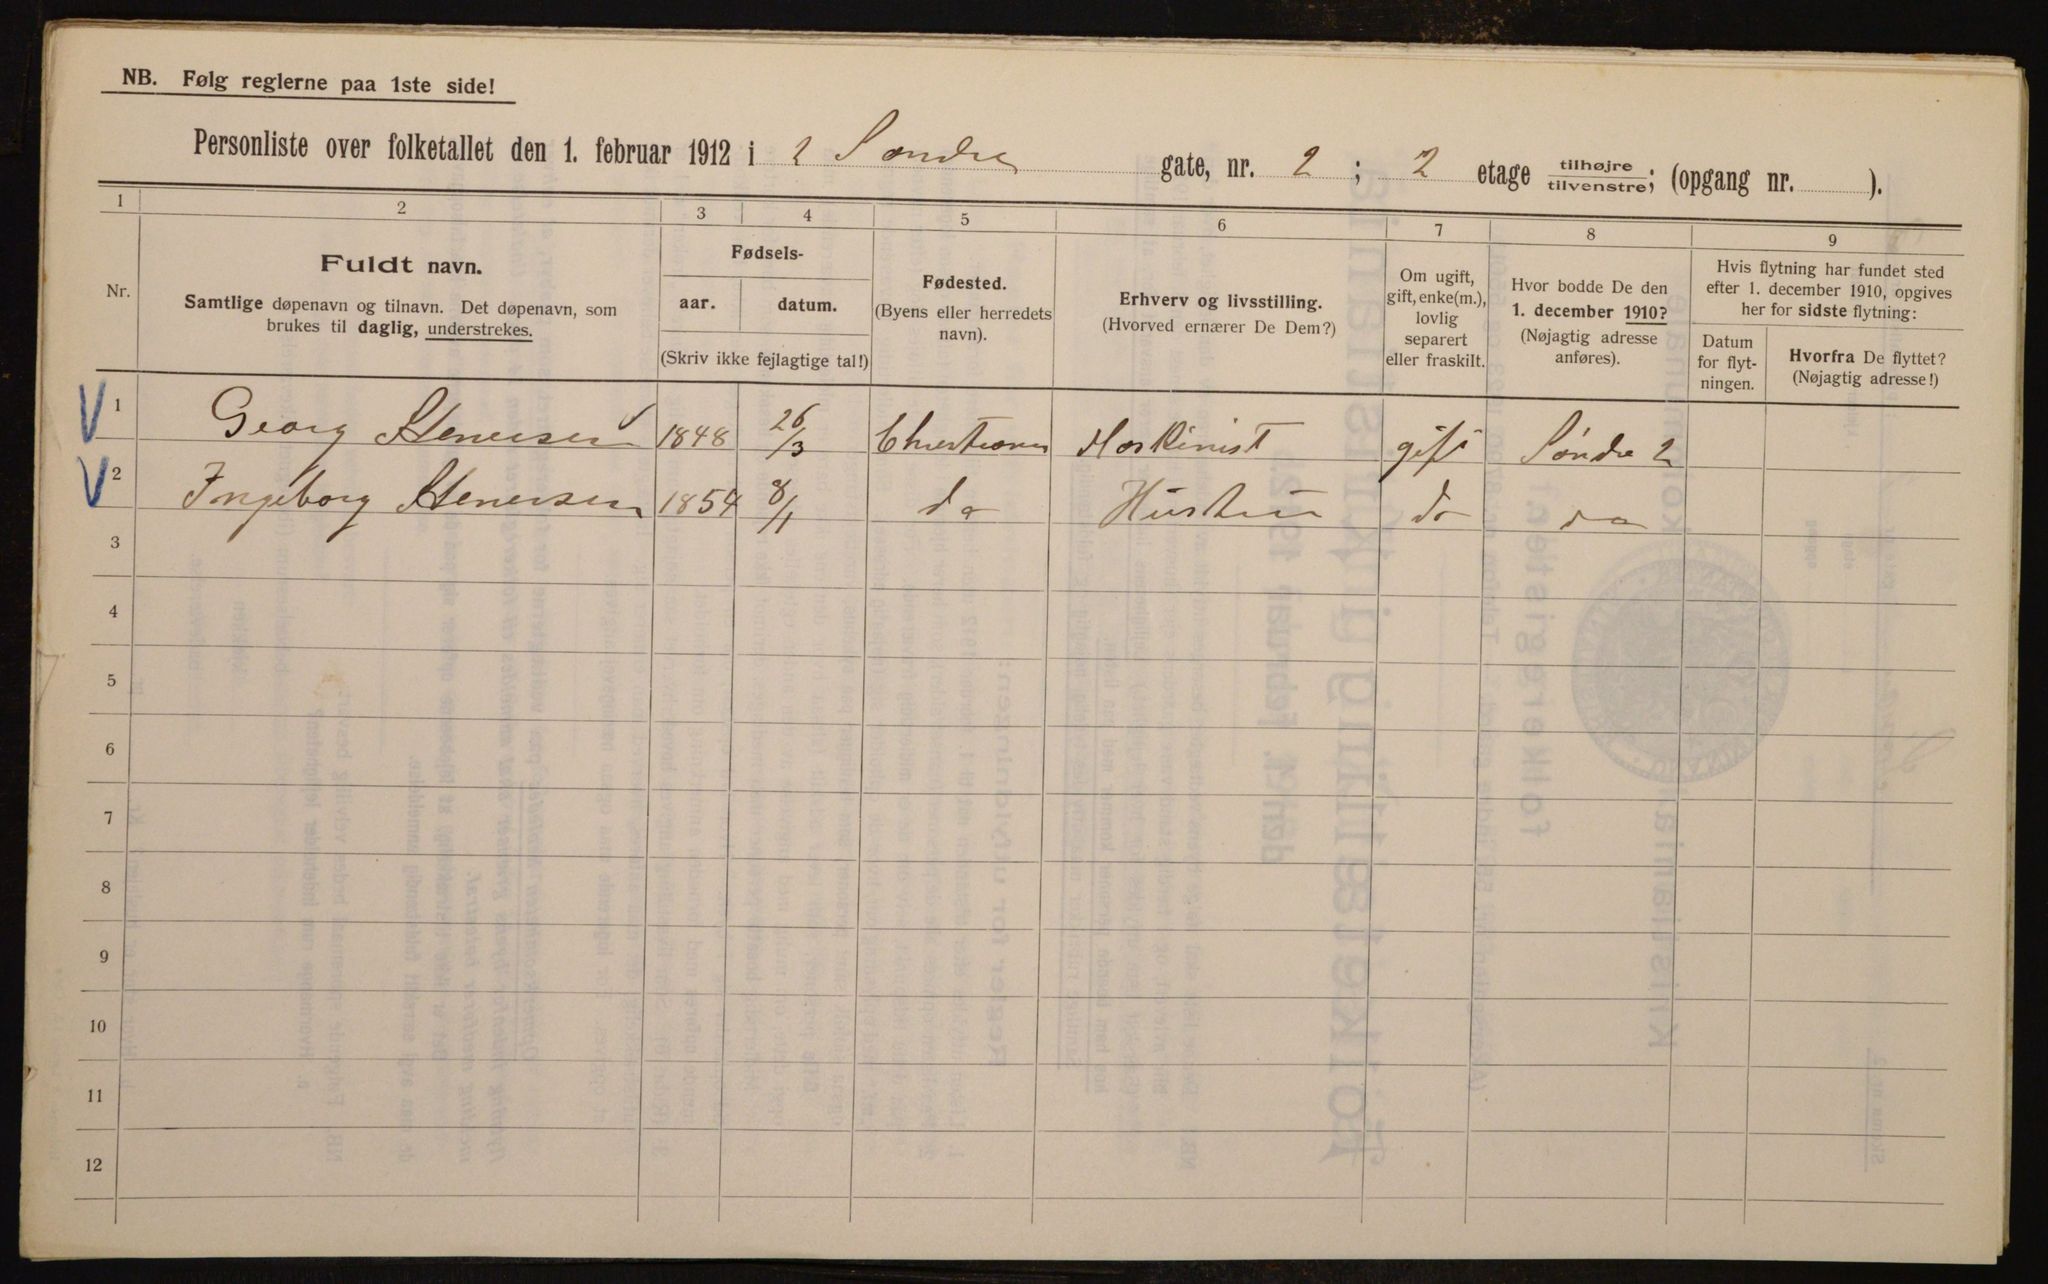 NB. Følg reglerne paa 1ste side!
Personliste over folketallet den 1. februar 1912 i 2 Søndre gate, nr. 2 ; 2 etage tilhøjre/tilvenstre; (opgang nr. ).
1 2 3 4 5 6 7 8 9
Nr.
Fuldt navn.
Samtlige døpenavn og tilnavn. Det døpenavn, som
brukes til daglig, understrekes.
Fødsels-
aar. datum.
(Skriv ikke fejlagtige tal!)
Fødested.
(Byens eller herredets
navn).
Erhverv og livsstilling.
(Hvorved ernærer De Dem?)
Om ugift,
gift, enke(m.),
lovlig
separert
eller fraskilt.
Hvor bodde De den
1. december 1910?
(Nøjagtig adresse
anføres).
Hvis flytning har fundet sted
efter 1. december 1910, opgives
her for sidste flytning:
Datum
for flyt-
ningen.
Hvorfra De flyttet?
(Nøjagtig adresse!)
1 Georg Stenersen 1848 26/3 Christiania Maskinist gift Søndre 2
2 Ingeborg Stenersen 1854 8/11 do Hustru do do
3
4
5
6
7
8
9
10
11
12